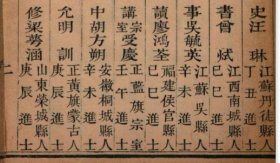 史汪琳 江蘇丹徒縣人 進士
書曾 江西南城縣人 己巳進士
事吳毓英 江蘇吳縣人 辛未進士
讀廖鴻荃 福建侯官縣人 己巳進士
講宗室受慶 正藍旗宗室 壬午進士
中胡方朔 安徽桐城縣人 辛未進士
允明訓 正黃旗蒙古人 庚辰進士
修梁蕚涵 山東榮城縣人 庚辰進士
二